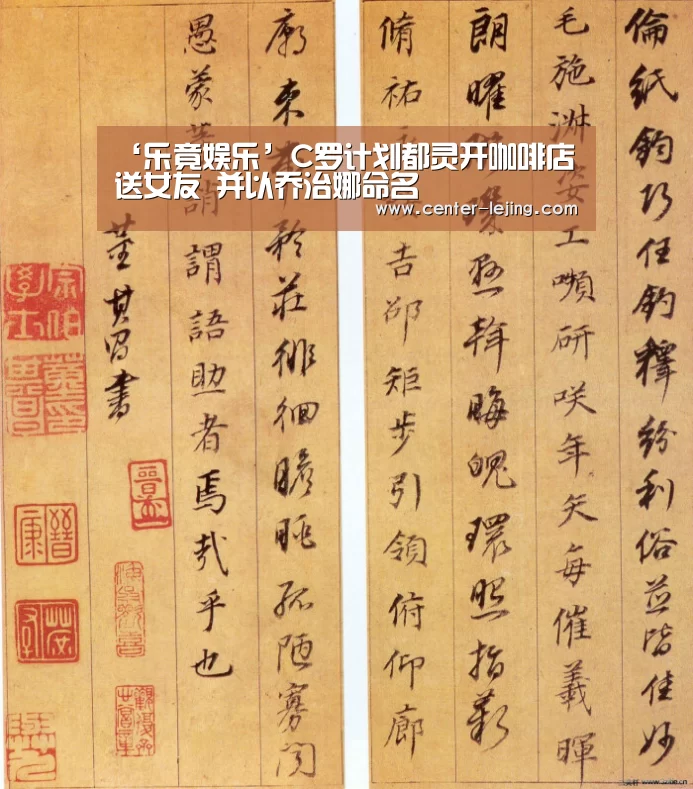 ‘乐竟娱乐’C罗计划都灵开咖啡店
送女友 并以乔治娜命名
www.center-lejing.com
倫紙鈞巧任釣釋紛利俗並皆佳妙
毛施淑姿工嚬研咲年矢每催羲暉
朗曜璣懸斡晦魄環照指薪
脩祜吉邵矩步引領俯仰廊
廟束帶矜莊徘徊瞻眺孤陋寡聞
愚蒙等誚謂語助者焉哉乎也
董其昌書
宗伯學士